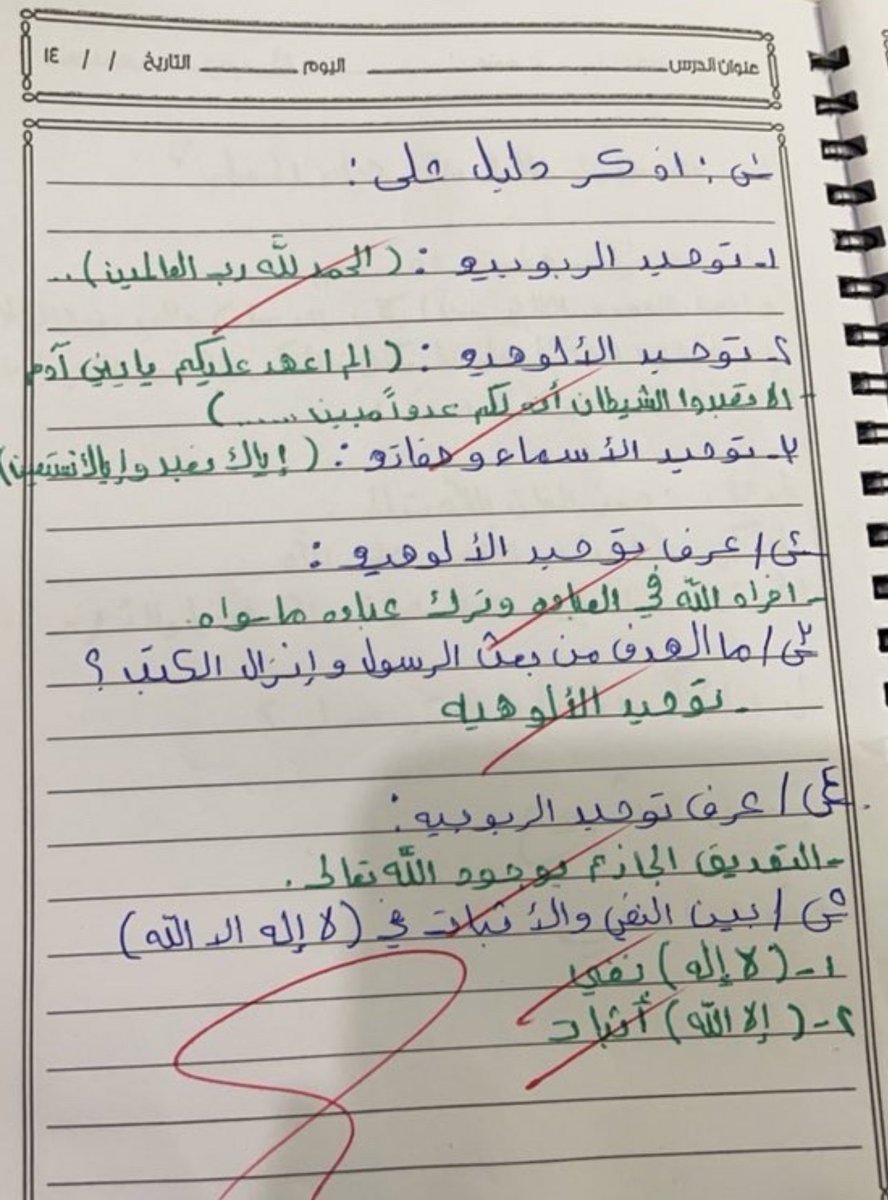 عنوان الدرس اليوم التاريخ / / ١٤
س : اذكر دليل على :
١- توحيد الربوبيه : ( الحمد لله رب العالمين ) ..
٢- توحيد الألوهيه : ( الم اعهد عليكم يا بني آدم
الا تعبدوا الشيطان أنه لكم عدواً مبين ...... )
٣- توحيد الأسماء وصفاته : ( إياك نعبد وإياك نستعين )
س / عرف توحيد الألوهيه :
- افراد الله في العباده وترك عباده ماسواه .
س٣ / ما الهدف من بعث الرسول وإنزال الكتب ؟
- توحيد الألوهيه
س٤ / عرف توحيد الربوبيه :
- التصديق الجازم بوجود الله تعالى .
س٥ / بين النفي والأثبات في ( لا إله الا الله )
١- ( لا إله ) نفي
٢- ( إلا الله ) أثبات